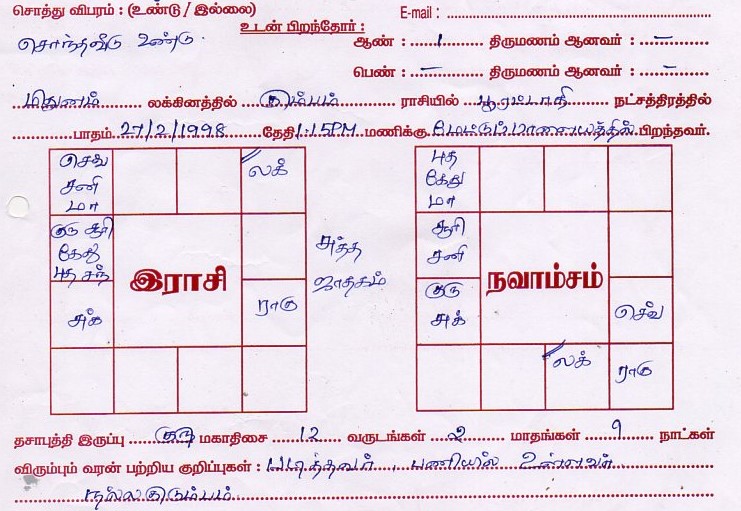 சொத்து விபரம் : (உண்டு / இல்லை) E-mail :
சொந்தவீடு உண்டு. உடன் பிறந்தோர் : ஆண் : 1 திருமணம் ஆனவர் : –
பெண் : – திருமணம் ஆனவர் : –
மிதுனம் லக்கினத்தில் கும்பம் ராசியில் பூரட்டாதி நட்சத்திரத்தில்
பாதம் 27/2/1998 தேதி 1:15PM மணிக்கு மேட்டுப்பாளையத்தில் பிறந்தவர்.
செவ்
சனி
மா
லக்
குரு சூரி
கேது
புத சந்
இராசி
சுக்
ராகு
சுத்த
ஜாதகம்
புத
கேது
மா
சூரி
சனி
நவாம்சம்
குரு
சுக்
செவ்
லக்
ராகு
தசாபுத்தி இருப்பு குரு மகாதிசை 12 வருடங்கள் 2 மாதங்கள் 9 நாட்கள்
விரும்பும் வரன் பற்றிய குறிப்புகள் : படித்தவர், பணியில் உள்ளவர்
நல்லகுடும்பம்